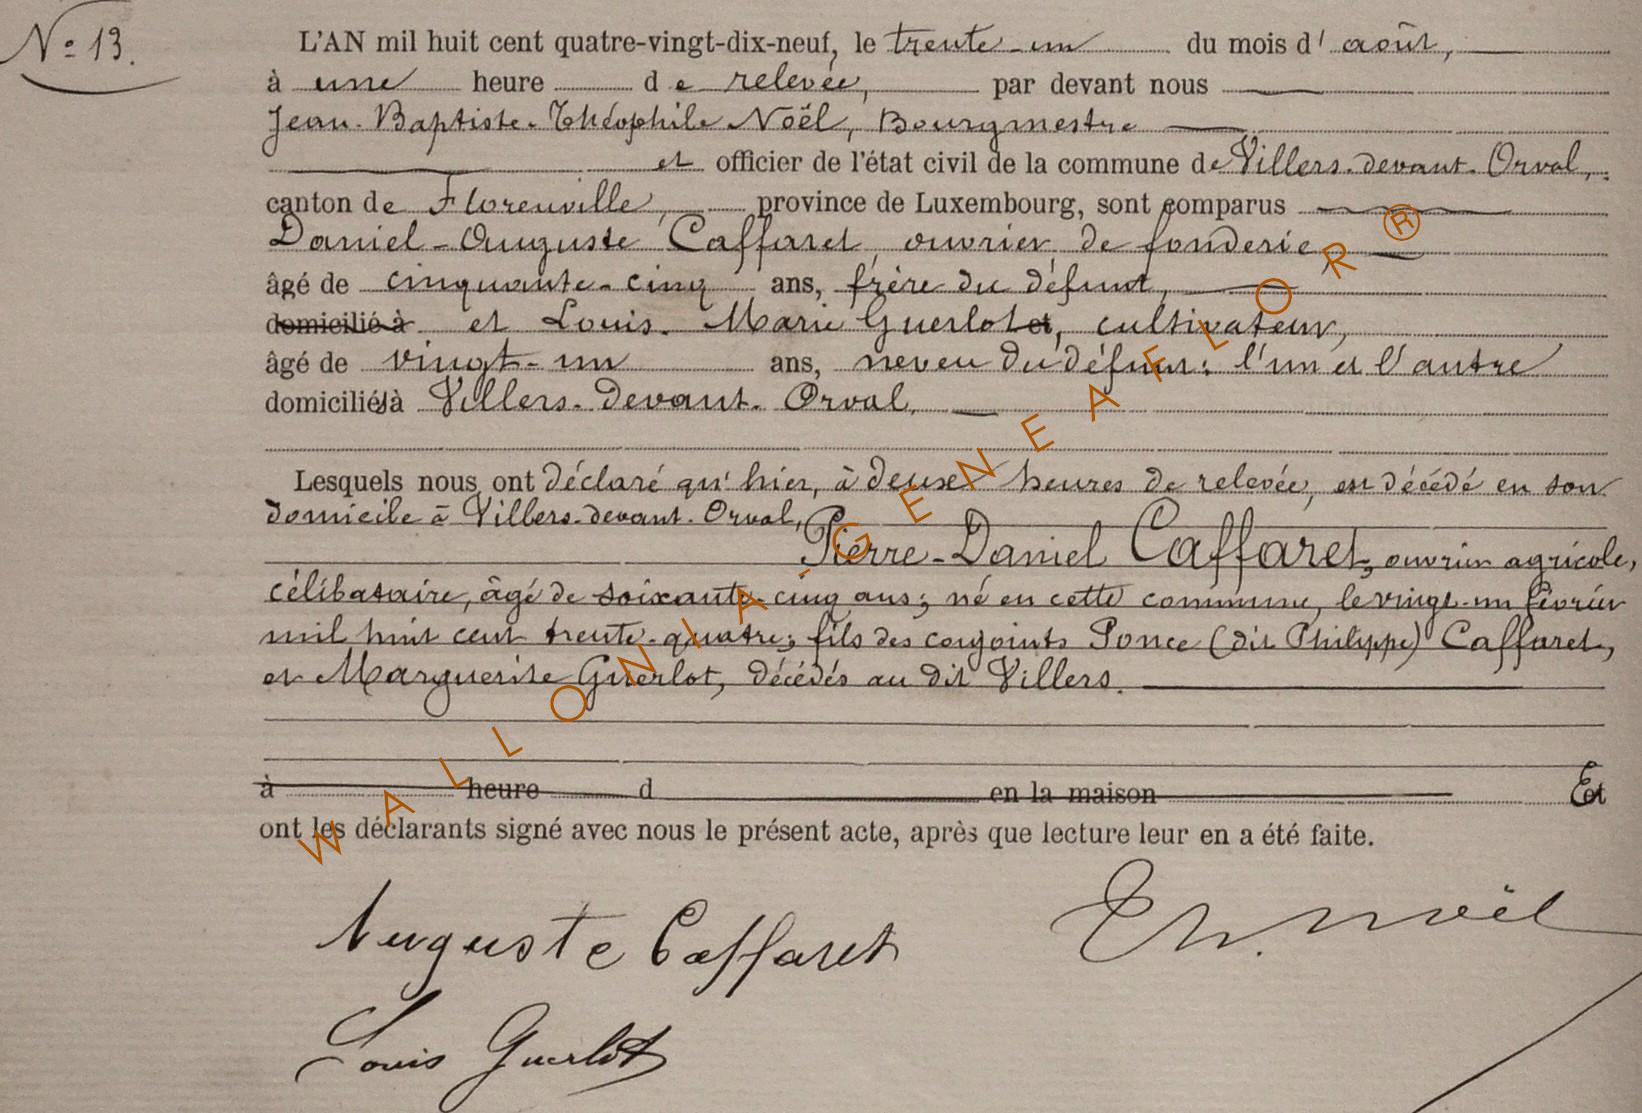 Nº 13.
L'AN mil huit cent quatre-vingt-dix-neuf, le trente-un du mois d'août,
à une heure de relevée, par devant nous
Jean-Baptiste-Théophile Noël, Bourgmestre
et officier de l'état civil de la commune de Villers-devant-Orval,
canton de Florenville, province de Luxembourg, sont comparus
Daniel-Auguste Caffaret, ouvrier de fonderie,
âgé de cinquante-cinq ans, frère du défunt,
domicilié à et Louis-Marie Guerlot, cultivateur,
âgé de vingt-un ans, neveu du défunt; l'un et l'autre
domiciliés à Villers-devant-Orval,
Lesquels nous ont déclaré qu'hier, à deux heures de relevée, est décédé en son
domicile à Villers-devant-Orval,
Pierre-Daniel Caffaret, ouvrier agricole,
célibataire, âgé de soixante-cinq ans; né en cette commune, le vingt-un février
mil huit cent trente-quatre; fils des conjoints Ponce (dit Philippe) Caffaret,
et Marguerite Guerlot, décédés au dit Villers.
à heure d en la maison Et
ont les déclarants signé avec nous le présent acte, après que lecture leur en a été faite.
Auguste Caffaret Th. Noël
Louis Guerlot
WALLONIA-GENEAFLOR®